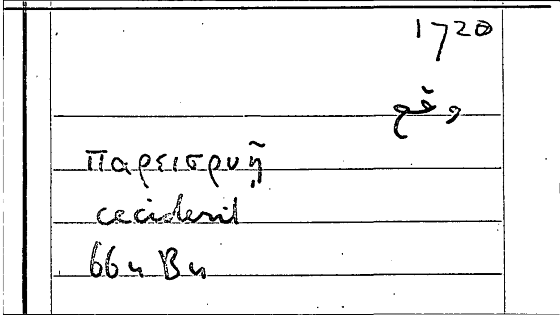 1720
وقع
παρεισρυῇ
ceciderit
664 B4